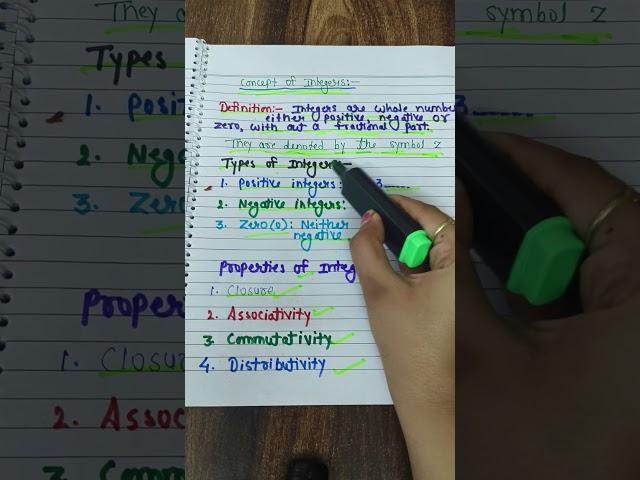 Concept of Integers:-
Definition:- Integers are whole number
either positive, negative or
zero, with out a fractional part.
They are denoted by the symbol z
Types of Integers:-
1. Positive integers: 3.....
2. Negative integers:
3. Zero(0): Neither
negative
Properties of Integ
1. Closure
2. Associativity
3 Commutativity
4. Distributivity